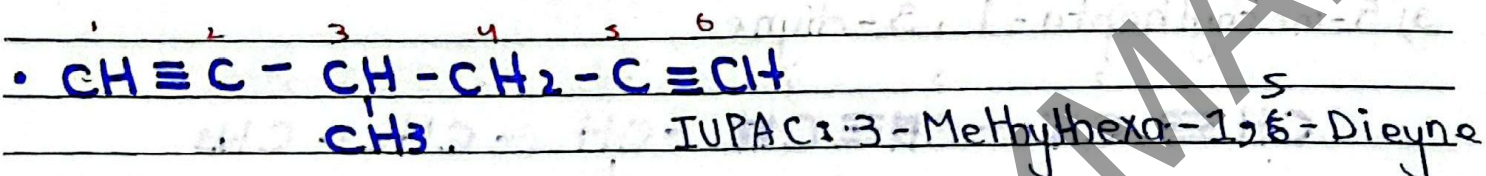 1 2 3 4 5 6
• CH ≡ C - CH - CH2 - C ≡ CH
CH3. 5
IUPAC: 3 - Methylhexa - 1,6 - Dieyne